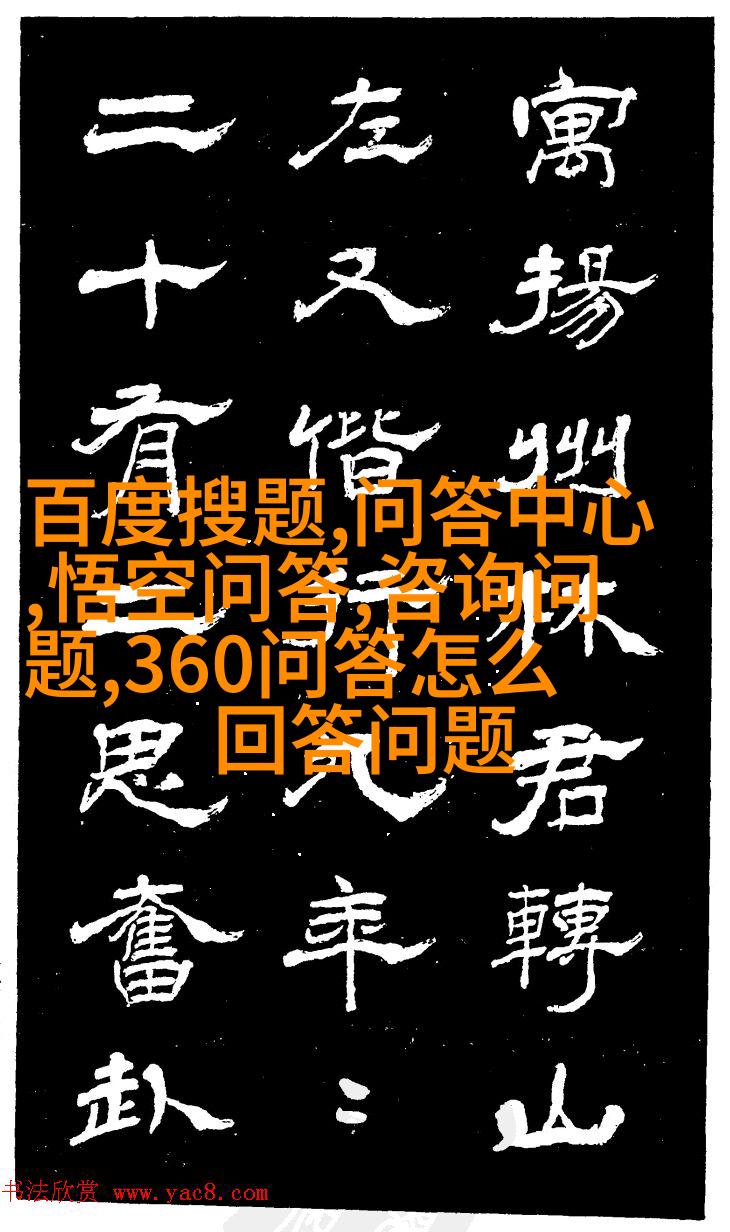 寓揚州君轉山
左又偕行年〻
二十有思奮赴
百度搜题,问答中心
,悟空问答,咨询问
题,360问答怎么
回答问题
书法欣赏 www.yac8.com